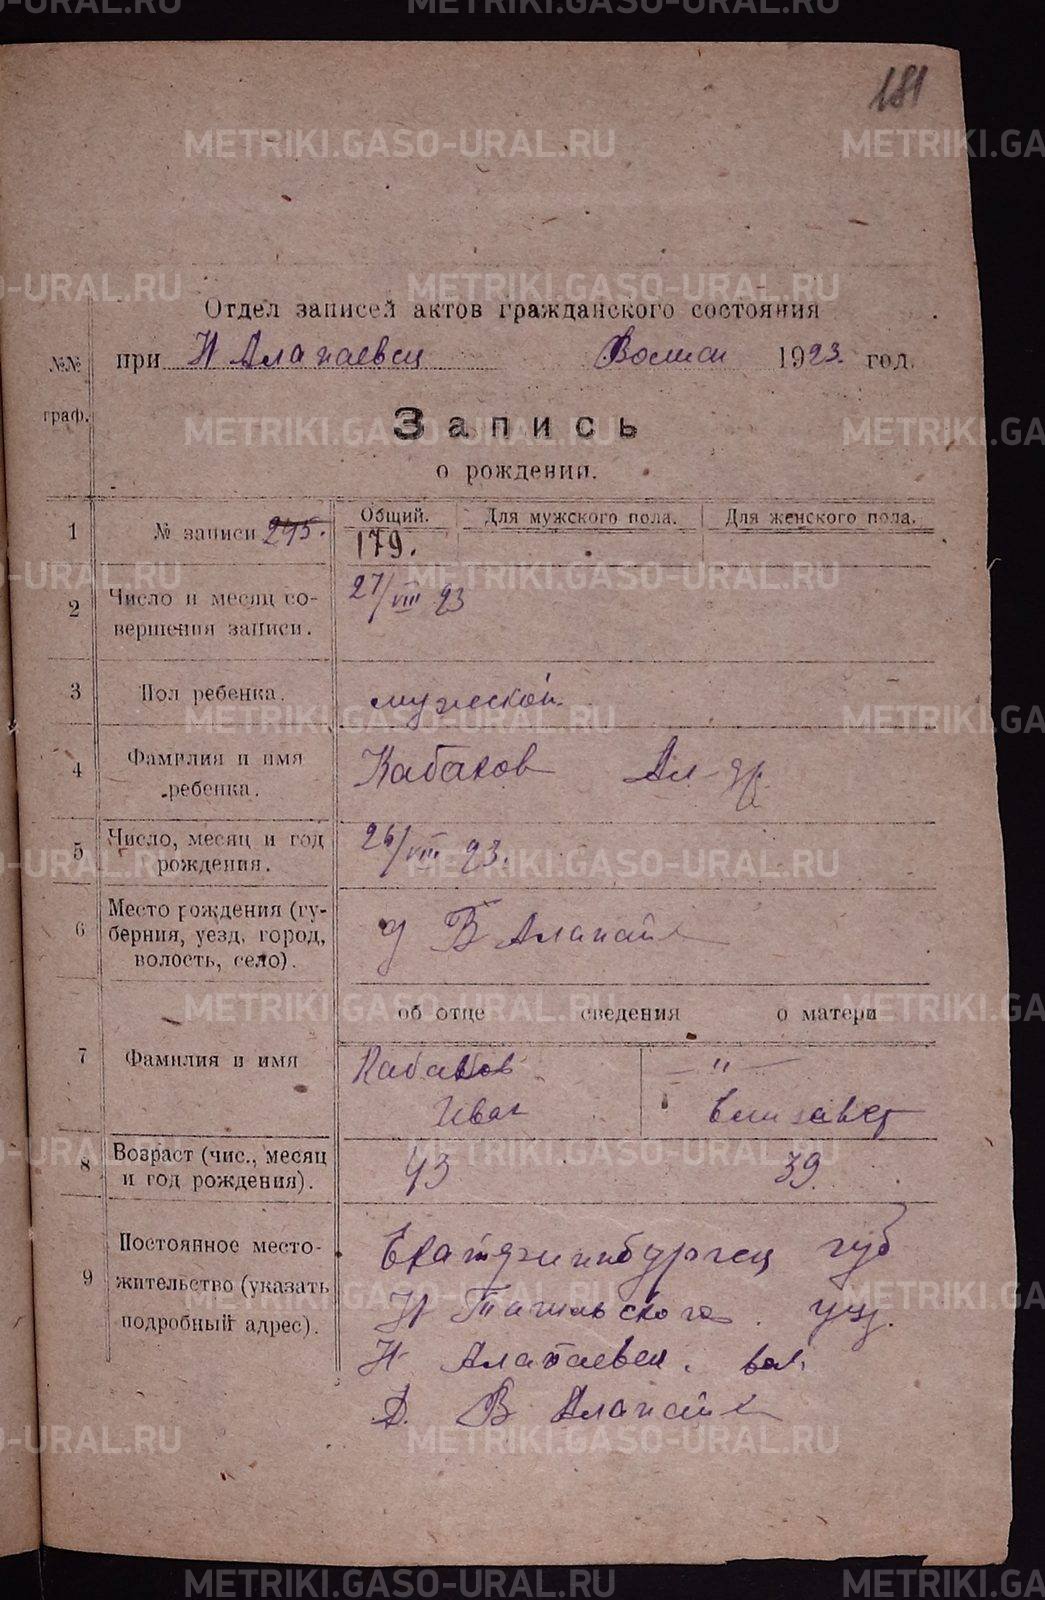 181
Отдел записей актов гражданского состояния
№№ граф.
при Н Алапаевск Волисп 1923 год.
Запись
о рождении.
Общий. Для мужского пола. Для женского пола.
1 № записи 245. 179.
2 Число и месяц со-
вершения записи. 27/VIII 23
3 Пол ребенка. мужской
4 Фамилия и имя
ребенка. Кабаков Ал-др
5 Число, месяц и год
рождения. 26/VIII 23.
6 Место рождения (гу-
берния, уезд, город,
волость, село). д В Алапаиха
об отце сведения о матери
7 Фамилия и имя Кабаков — " —
Иван Елизавет
8 Возраст (чис., месяц
и год рождения). 43 39
9 Постоянное место-
жительство (указать
подробный адрес).
Екатеринбургск губ
Н Тагильского уез.
Н Алапаевск. вол.
д. В Алапаиха
METRIKI.GASO-URAL.RU